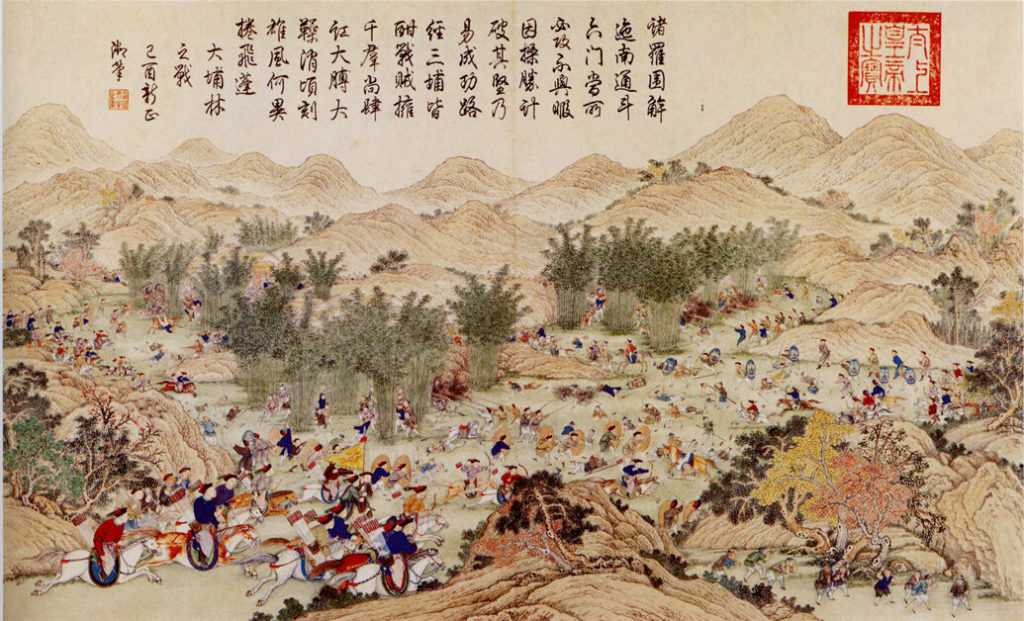 太上皇帝之寶
諸羅圍解
迤南通斗
六門當所
必攻不與暇
因操勝計
破其堅乃
易成功路
經三埔皆
酣戰賊擁
千羣尚肆
訌大膊大
消頃刻
雄風何異
捲飛蓬
大埔林
之戰
己酉新正
御筆